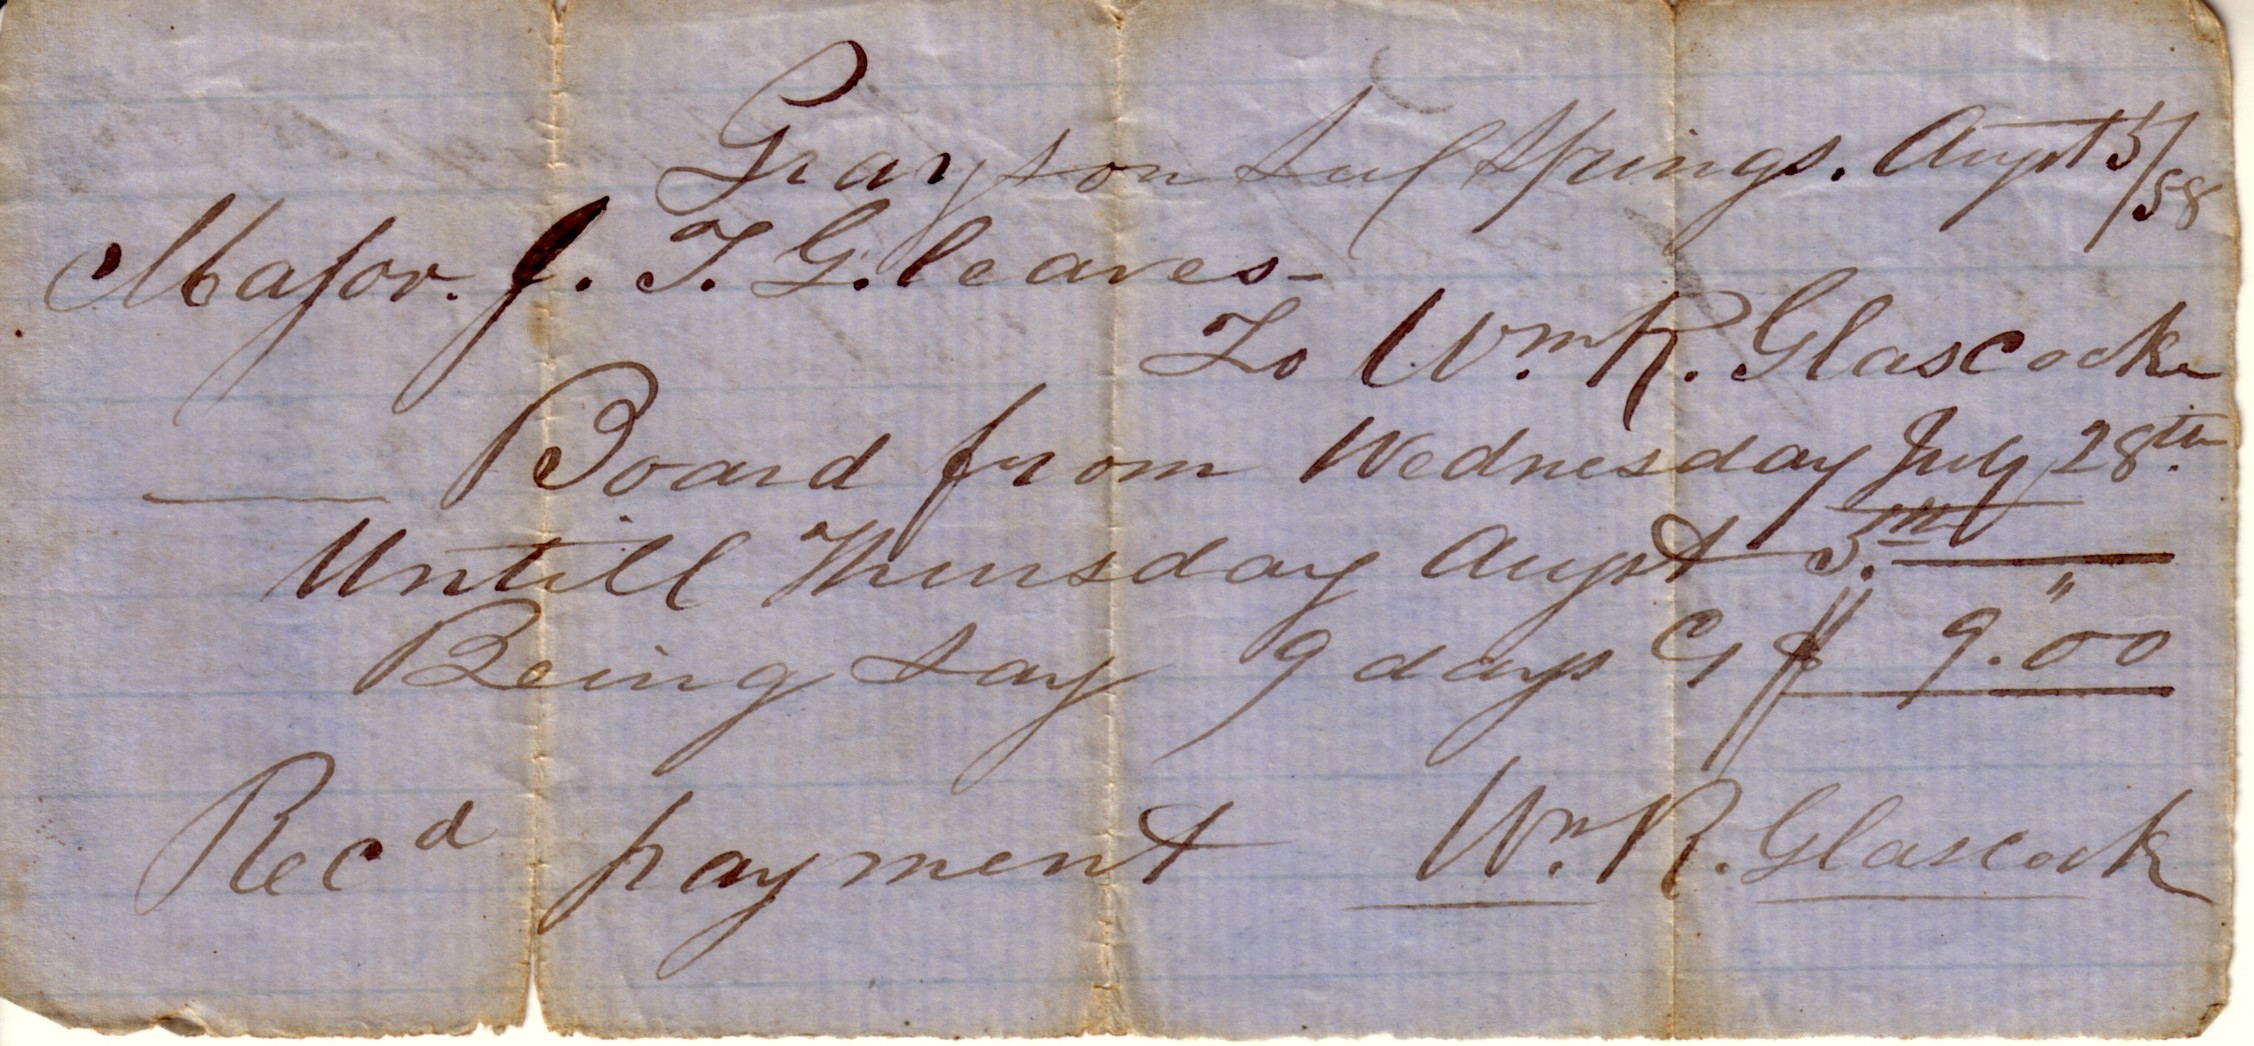 Grayson Sul Springs. Augst 5/58
Major. J. T. G. Cleaves–
To Wm. R. Glascock
Board from Wednesday July 28th.
Untill Thursday Augst 5.th
Being say 9 days $ 9."00
Recd payment Wm. R. Glascock